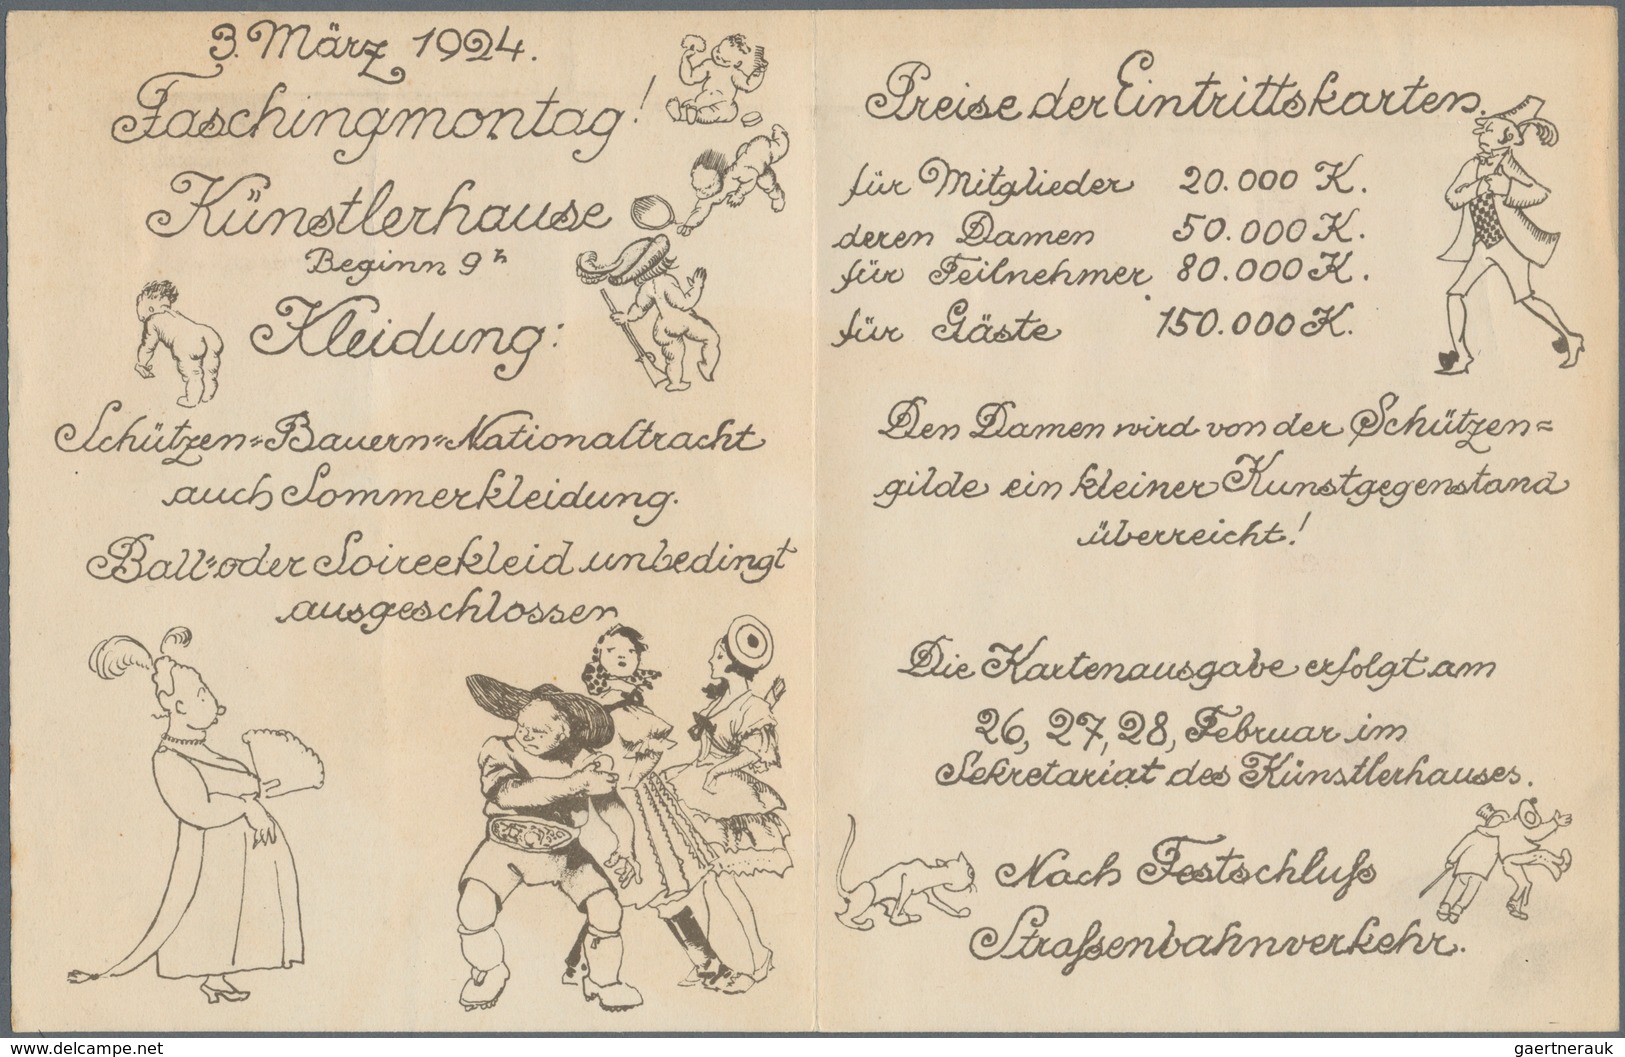 3. März 1924.
Faschingmontag!
Künstlerhause
Beginn 9 h
Kleidung:
Schützen=Bauern=Nationaltracht
auch Sommerkleidung.
Ball=oder Soireekleid unbedingt
ausgeschlossen
Preise der Eintrittskarten.
für Mitglieder 20.000 K.
deren Damen 50.000 K.
für Teilnehmer 80.000 K.
für Gäste 150.000 K.
Den Damen wird von der Schützen=
gilde ein kleiner Kunstgegenstand
überreicht!
Die Kartenausgabe erfolgt am
26, 27, 28, Februar im
Sekretariat des Künstlerhauses.
Nach Festschluſs
Straſsenbahnverkehr.
www.delcampe.net
gaertnerauk